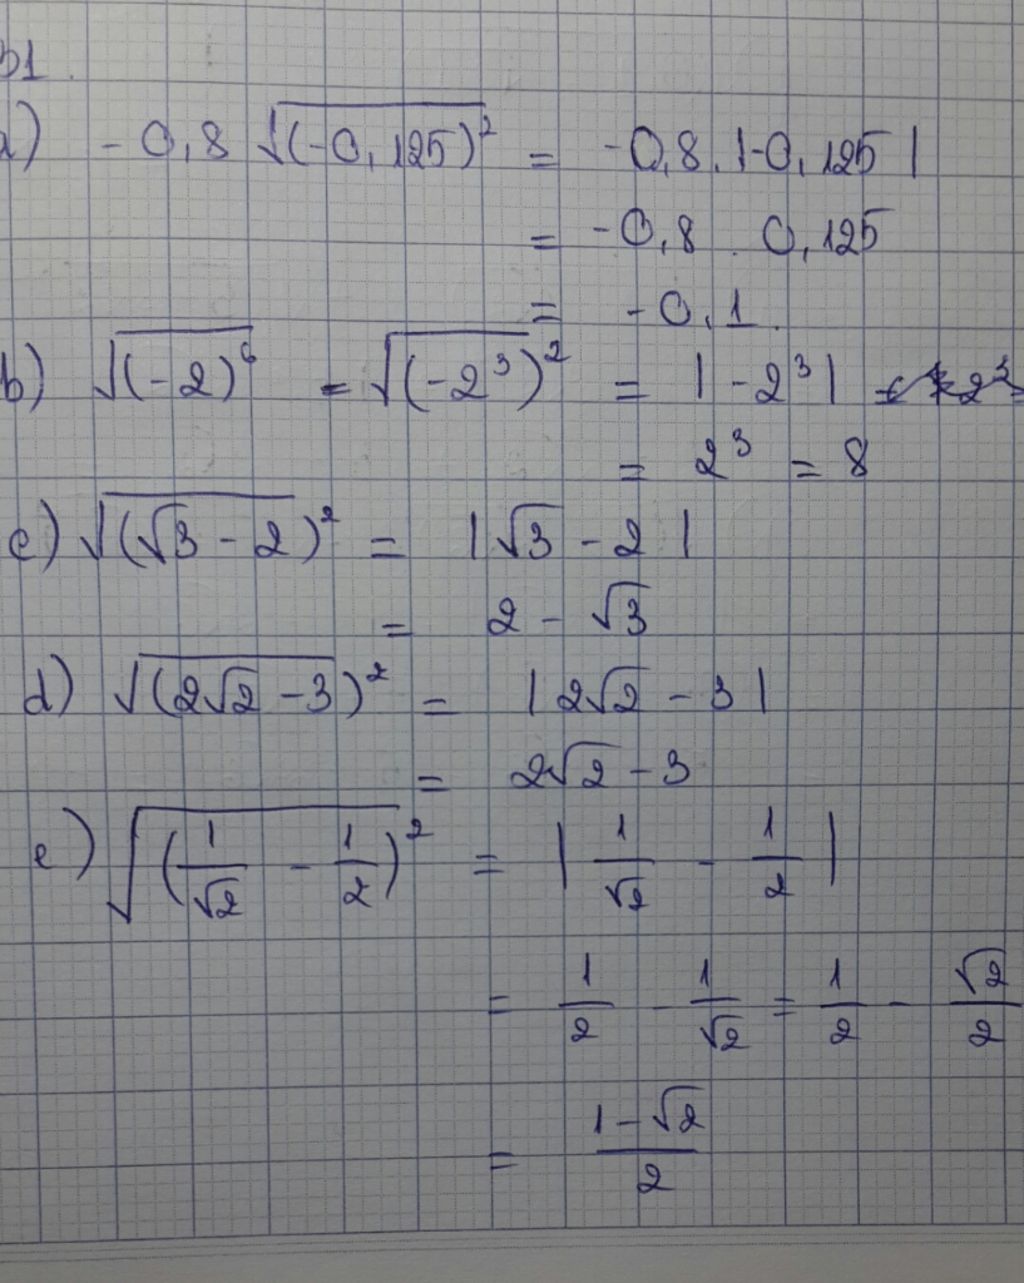 31.
a) -0,8 √(-0,125)² = -0,8.|-0,125|
= -0,8 . 0,125
= -0,1.
b) √(-2)⁶ = √(-2³)² = |-2³|
= 2³ = 8
c) √(√3 - 2)² = |√3 - 2|
= 2 - √3
d) √(2√2 - 3)² = |2√2 - 3|
= 2√2 - 3
e) √(1/√2 - 1/2)² = |1/√2 - 1/2|
= 1/2 - 1/√2 = 1/2 - √2/2
= (1-√2)/2